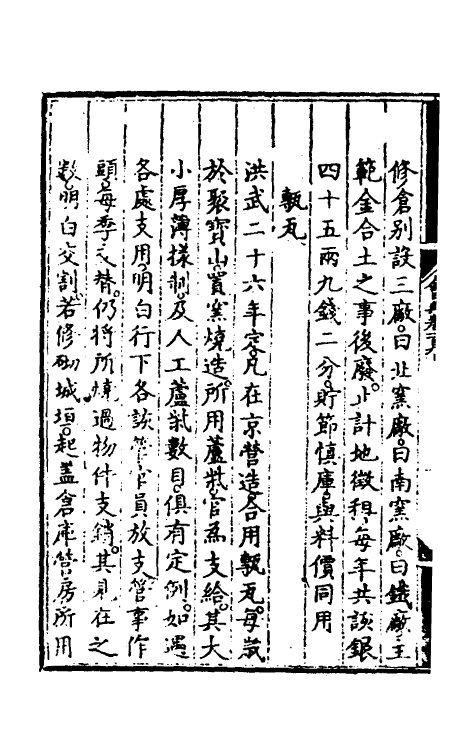 修倉別設三廠曰北窯廠曰南窯廠曰鐵廠主
範金合土之事後廢止計地徵租每年共該銀
四十五兩九錢二分貯節慎庫與料價同用
甎瓦
洪武二十六年定凡在京營造合用甎瓦每歲
於聚寶山置窯燒造所用蘆柴官為支給其大
小厚薄樣制及人工蘆柴數目俱有定例如遇
各處支用明白行下各該管官員放支管事作
頭每季交替仍將所燒過物件支銷其見在之
數明白交割若修砌城垣起蓋倉庫營房所用